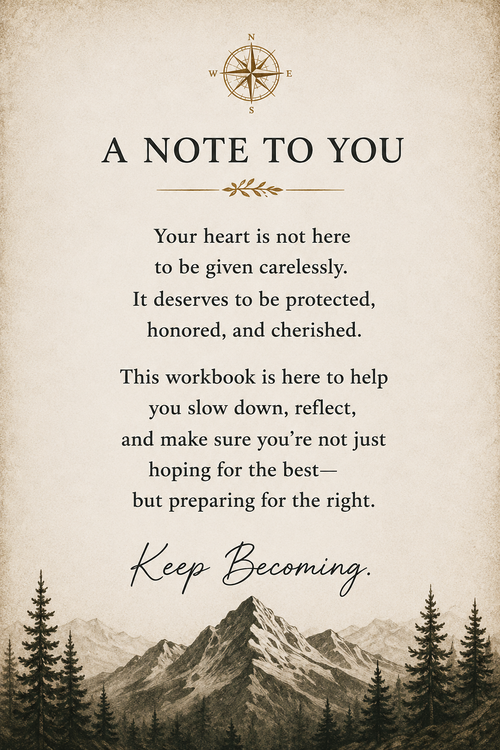 N
W E
S
A NOTE TO YOU
Your heart is not here
to be given carelessly.
It deserves to be protected,
honored, and cherished.
This workbook is here to help
you slow down, reflect,
and make sure you’re not just
hoping for the best—
but preparing for the right.
Keep Becoming.